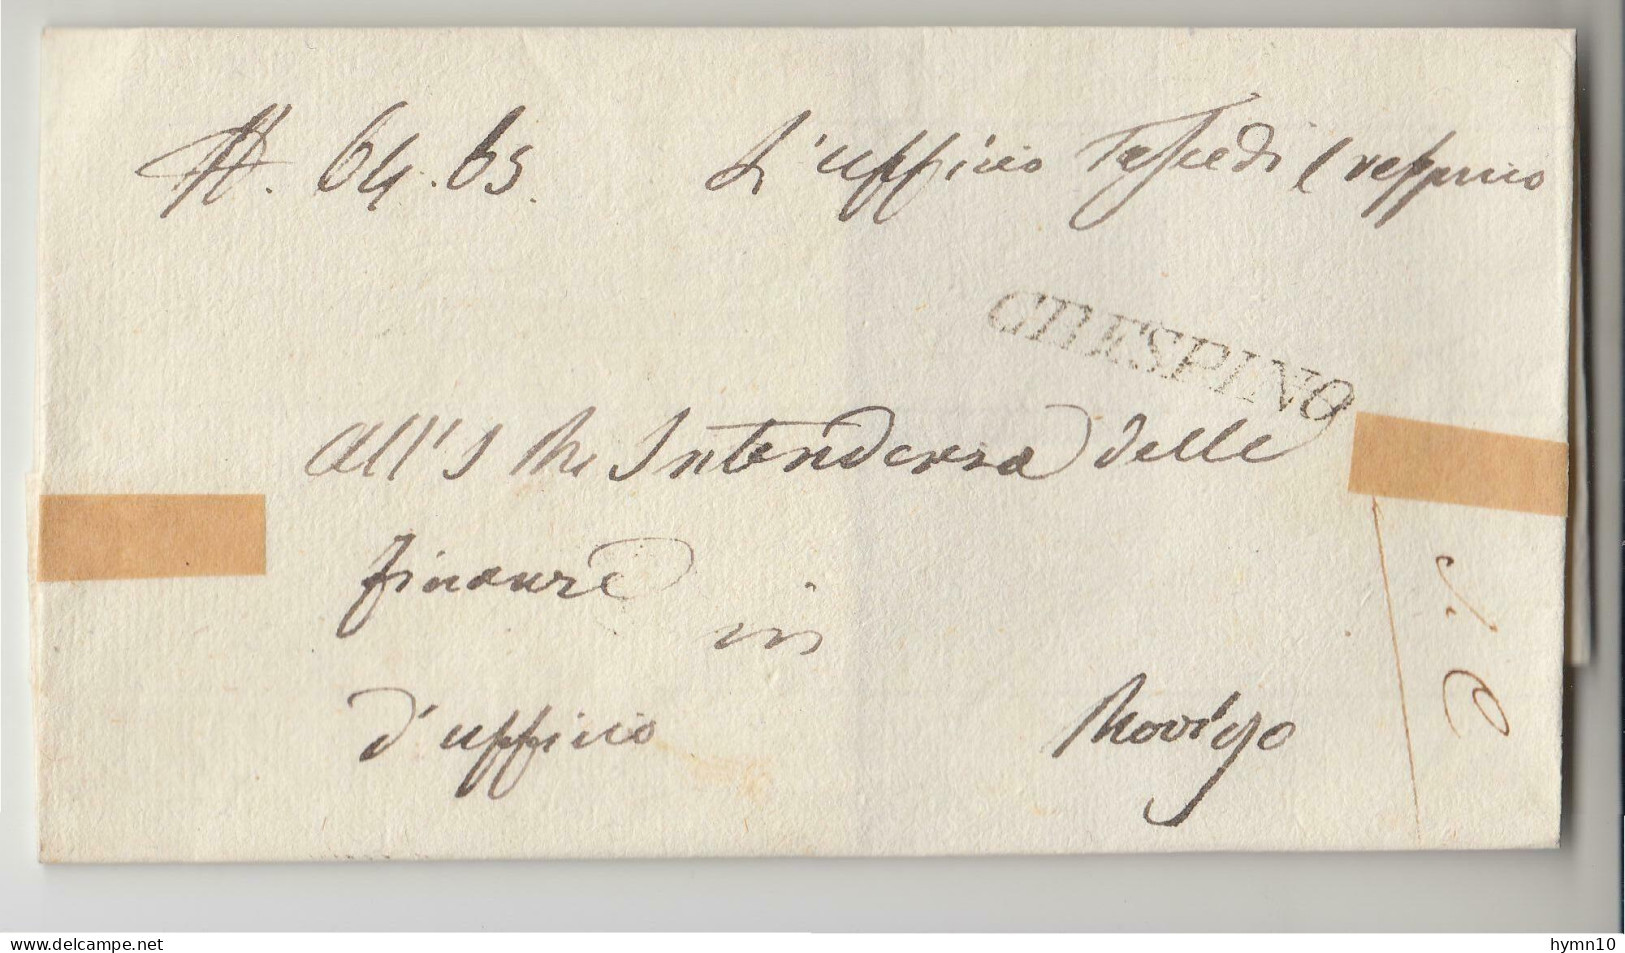 N. 64.65. L'ufficio Tasse di Crespino
CRESPINO
All'I R Intendenza delle
finanze
in
d'ufficio Rovigo
www.delcampe.net hymn10